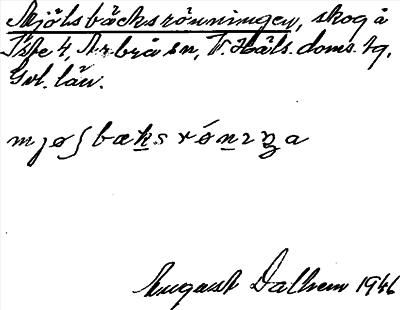 Mjölsbäcksrönningen, skog å
Täpe 4, Arbrå sn, V. Häls. doms. tg,
Gvl. län.
mjøʃbæksrónɪŋa
August Dalhem 1946